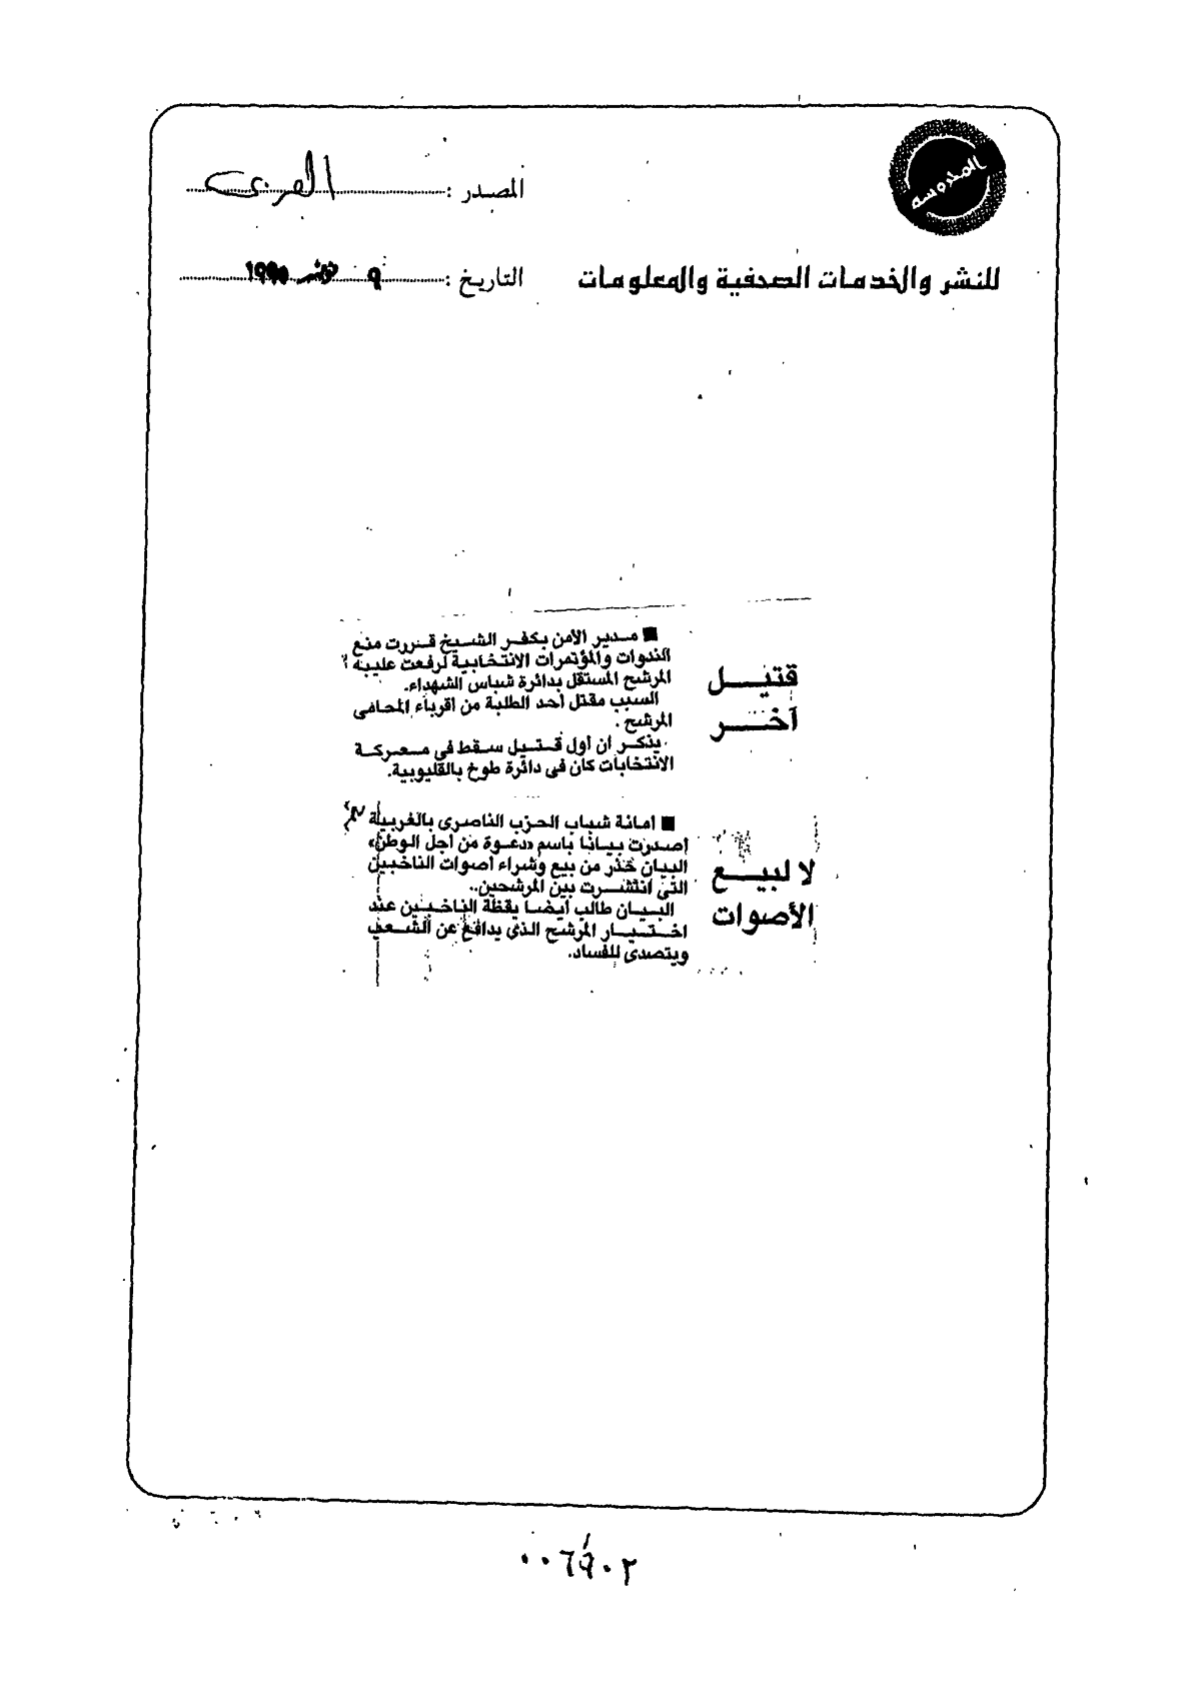 المحروسة
المصدر : العربى
للنشر والخدمات الصحفية والمعلومات
التاريخ : ٩ نوفمبر ١٩٩٥
قتيل
آخر
■ مدير الأمن بكفر الشيخ قررت منع
الندوات والمؤتمرات الانتخابية لرفعت
المرشح المستقل بدائرة شباس الشهداء.
السبب مقتل أحد الطلبة من أقرباء المحامى
المرشح .
يذكر أن أول قتيل سقط فى معركة
الانتخابات كان فى دائرة طوخ بالقليوبية.
لا لبيع
الأصوات
■ أمانة شباب الحزب الناصرى بالغربية
أصدرت بيانا باسم «دعوة من أجل الوطن»
البيان حذر من بيع وشراء أصوات الناخبين
التى انتشرت بين المرشحين..
البيان طالب أيضا يقظة الناخبين عند
اختيار المرشح الذى يدافع عن الشعب
ويتصدى للفساد.